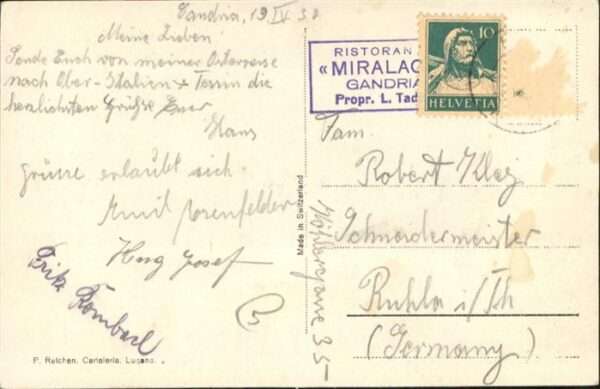 Gandria, 19 IV 30
Meine Lieben
Sende Euch von meiner Osterreise
nach Ober-Italien + Tessin die
herzlichsten Grüße Euer
Hans
Grüsse erlaubt sich
Emil Rosenfelder
Josef
Fritz Rombach
P. Reichen. Cartoleria. Lugano.
Made in Switzerland
RISTORAN
«MIRALAG
GANDRIA
Propr. L. Tad
10
HELVETIA
Fam.
Robert Kley
Schneidermeister
Ruhla i/Th
(Germany)
35